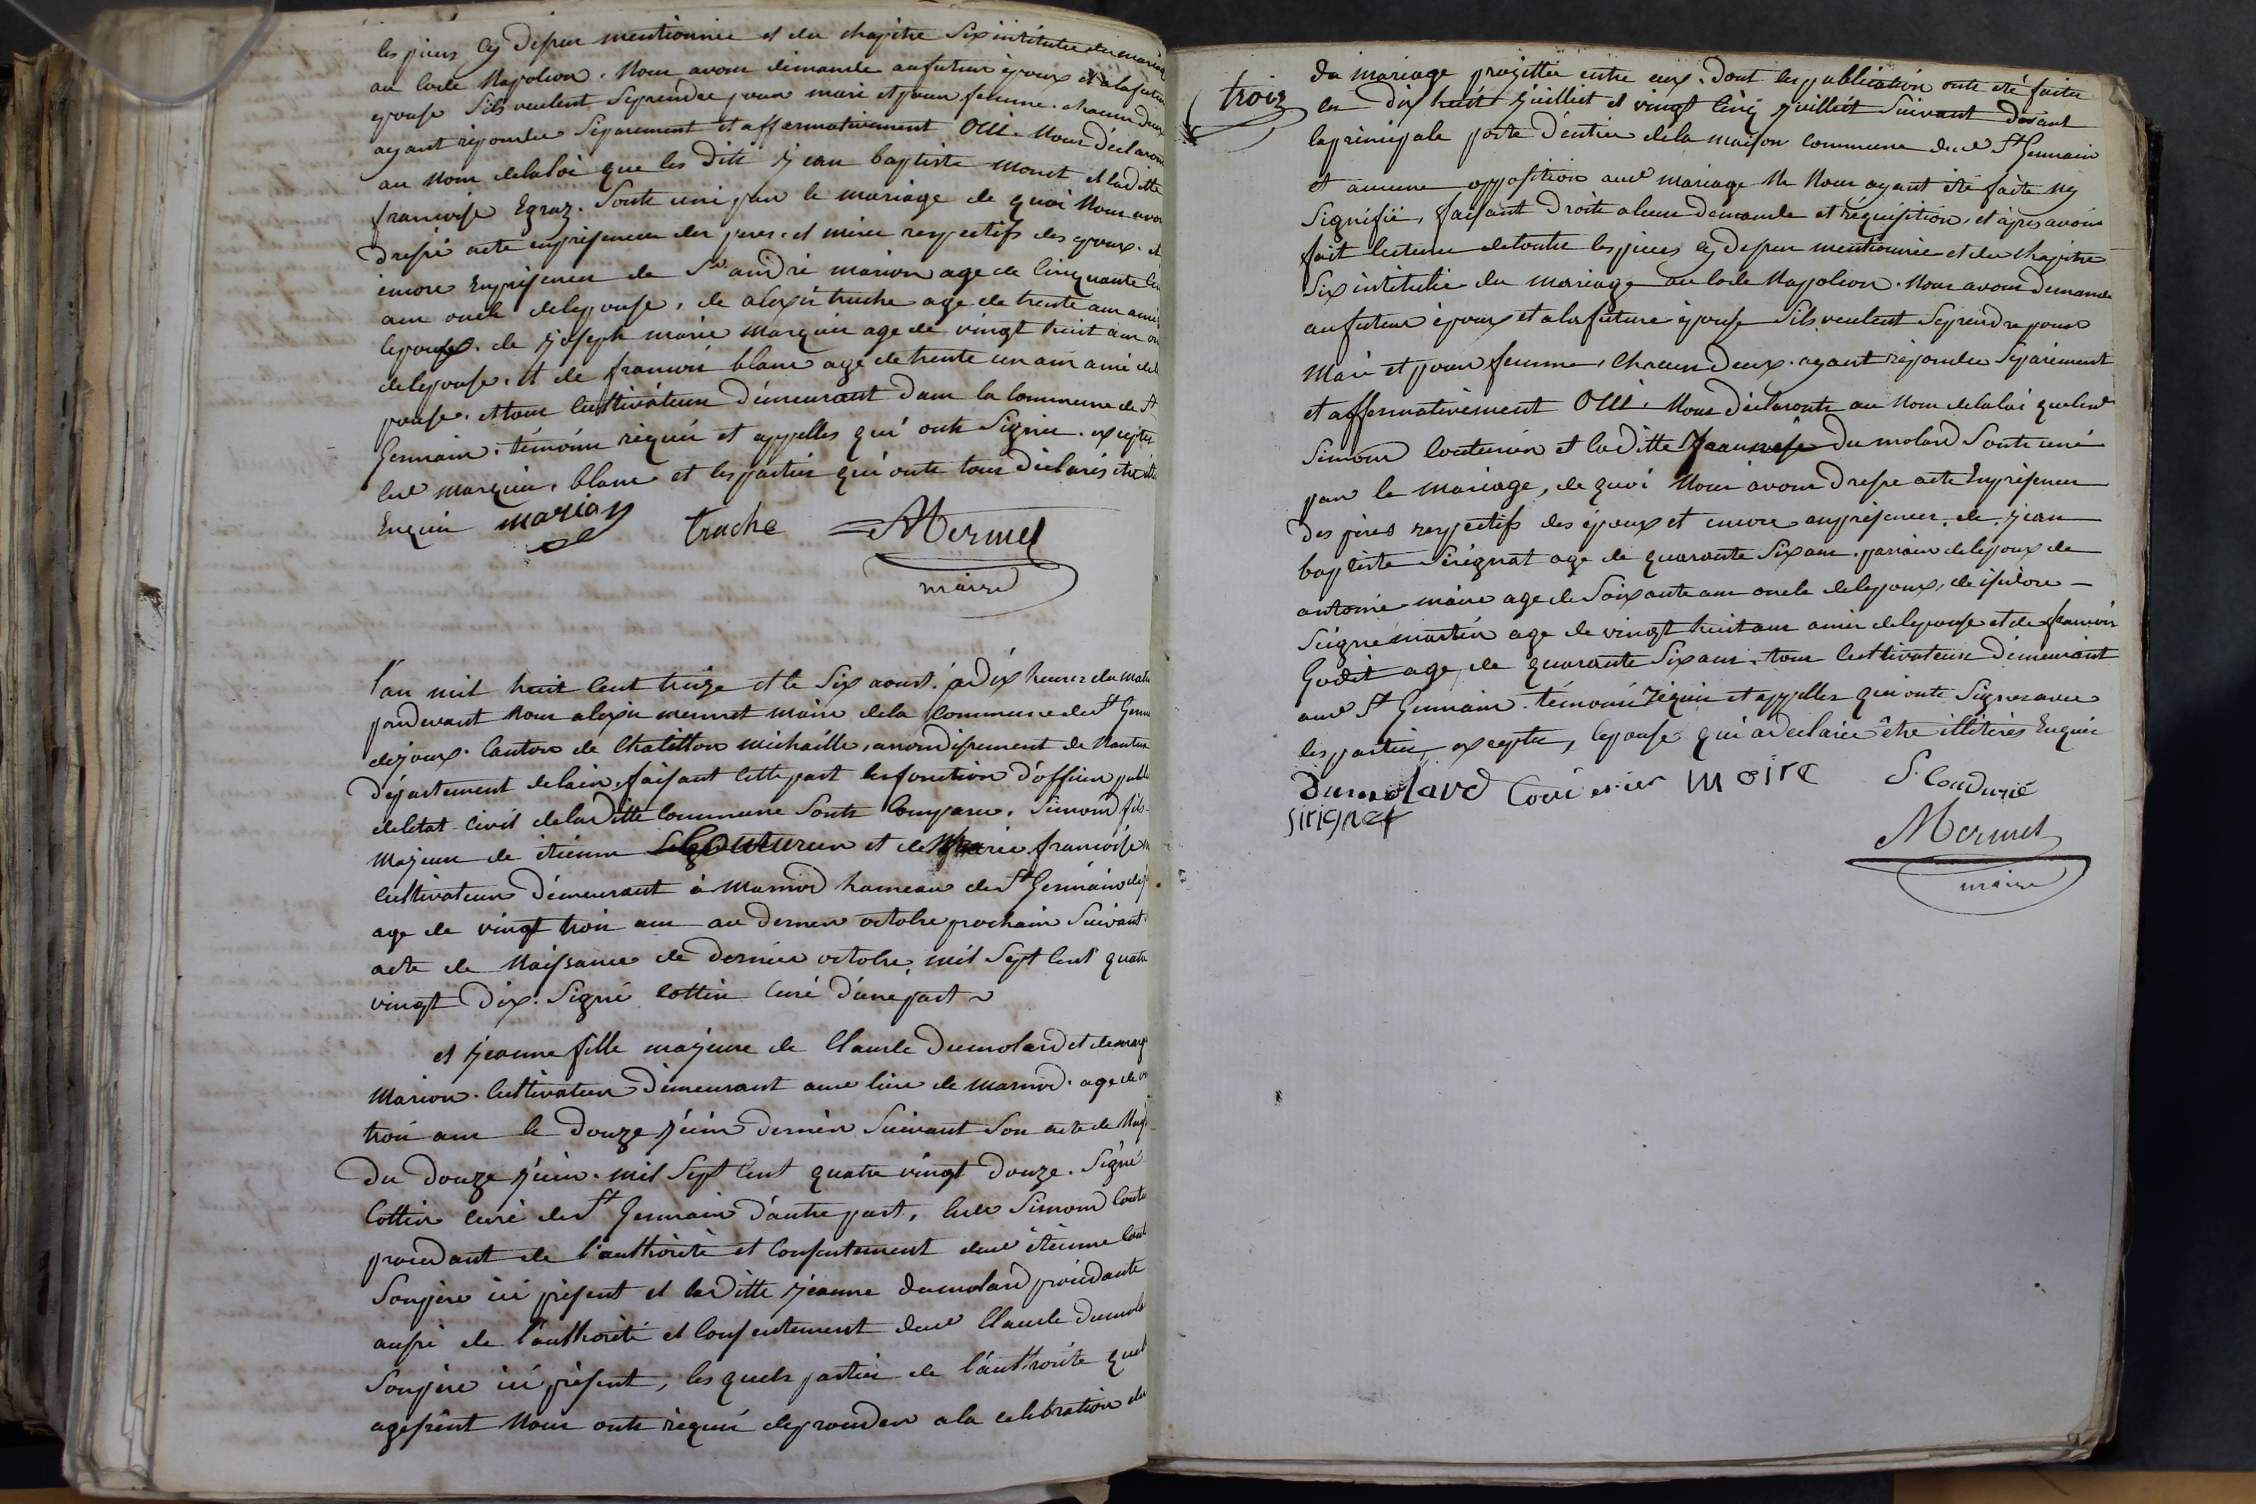 les pieces cy dessus mentionnée et du chapitre six intitulée du mariage
au Code Napoléon. Nous avons demande au futur époux et a la future
epouse s'ils veulent se prendre pour mari et pour femme. chacun deux
ayant répondu séparement et affermativement OUI. Nous déclarons
au Nom de la loi que les ditt jean baptiste monet et la ditte
francoise Egraz. Sont uni par le mariage de quoi Nous avons
dressé acte en présence des peres et mères respectifs des époux. et
encore en présence de Sr andré marion age de Cinquante
ans oncle de lepouse, de alexis truche age de trente ans amis
lepouse. de joseph marie marquis age de vingt huit ans
de lepouse. et de francois blanc age de trente un ans ami de l
pouse. et tous Cultivateurs demeurant dans la Commune de St
Germain. témoins réquis et appellés qui ont Signés. exepter
led marquis, blanc et les parties qui onte tous déclarés être
Enquis marion truche Mermet
maire
l'an mil huit Cent treize et le Six aoust. à dix heures du matin
pardevant Nous alexis mermet maire de la Commune de St Germ
de joux. Canton de Chatillon michaille, arrondissement de Nantua
département de lain, faisant cette part les fonction d'officier publ
de létat Civil de la ditte Commune Sonts Comparu, Simond fils
majeur de étienne Couturier et de marie francoise
Cultivateur demeurant à marnod hameau de St Germain de j
age de vingt trois ans au dernier octobre prochain Suivant
acte de Naissance de dernier octobre, mil Sept Cent quatre
vingt dix. Signé Cottin Curé d'une part
et jeanne fille majeure de Claude Dumolard et de marg
Marion. Cultivateur demeurant aud lieu de marnod. age de
trois ans le douze juin dernier Suivant Son acte de Nai
du douze juin. mil Sept Cent quatre vingt douze. Signé
Cottin Curé de St Germain d'autre part, led Simond Coutu
procédant de l'authorité et Consentement dud étienne Cout
Son père ici présent et la ditte jeanne dumolard procédante
aussi de l'authorité et Consentement dud Claude dumola
Son père ici présent, lesquels parties de l'authorité que
agissent Nous onts réquis de procéder a la celebration du
trois
du mariage projettée entre eux. Dont les publication onte été faite
les dix huit juilliet et vingt Cinq juilliet Suivant devant
la principale porte d'entrée de la maison Commune dud St Germain
et aucune opposition aud mariage Ne Nous ayant été faite ny
Signifié, faisant Droite a leur Demande et réquisition, et après avoir
fait lecture de toutes les pieces cy dessus mentionnée et du chapitre
Six intitulée du mariage au Code Napoleon. Nous avons demande
au futur époux et a la future épouse S'ils veulent Se prendre pour
Mari et pour femme, Chacun deux. ayant répondu Séparément
et affermativement OUI. Nous déclaronts au Nom de la loi que led
Simond Couturier et la ditte du molard Sonts uni
par le mariage, de quoi Nous avons dressé acte En présence
des pères respectifs des époux et encore en présence. de jean
baptiste Sirignat age de quarante Six ans. parain de lepoux de
antoine moire age de Soixante ans oncle de lepoux, de isidore
Seigne martin age de vingt huit ans amis de lepouse et de francois
Godet age, de quarante Six ans, tous Cultivateurs demeurant
aud St Germain. témoins réquis et appellés qui onte Signés avec
les parties, exeptée, lepouse qui a déclarée être illitérés Enquis
dumolard Couturier moire S. Couduriè
sirignet
Mermet
maire